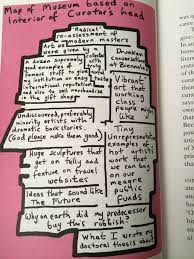 Map of Museum based on
Interior of Curator's head
Radical
re-assessment of
modern masters
Art we
own a lot of
a dozen supremely
good examples of
famous stuff to give
my institution an easy
international reputation
in the gift shop
Drunken
conversation
at Biennale
Vibrant
art that
working
class
people might
like
Undiscovered, preferably
minority artists with
dramatic back stories
(God please make them good)
Huge sculptures that
get on telly and
feature on travel
websites
Ideas that sound like
The Future
Tiny
unrepresentative
examples of
hot artists
work that
we can
buy on
our
meagre
public
funds
Why on earth did my predecessor
buy this rubbish?
What I wrote my
doctoral thesis about